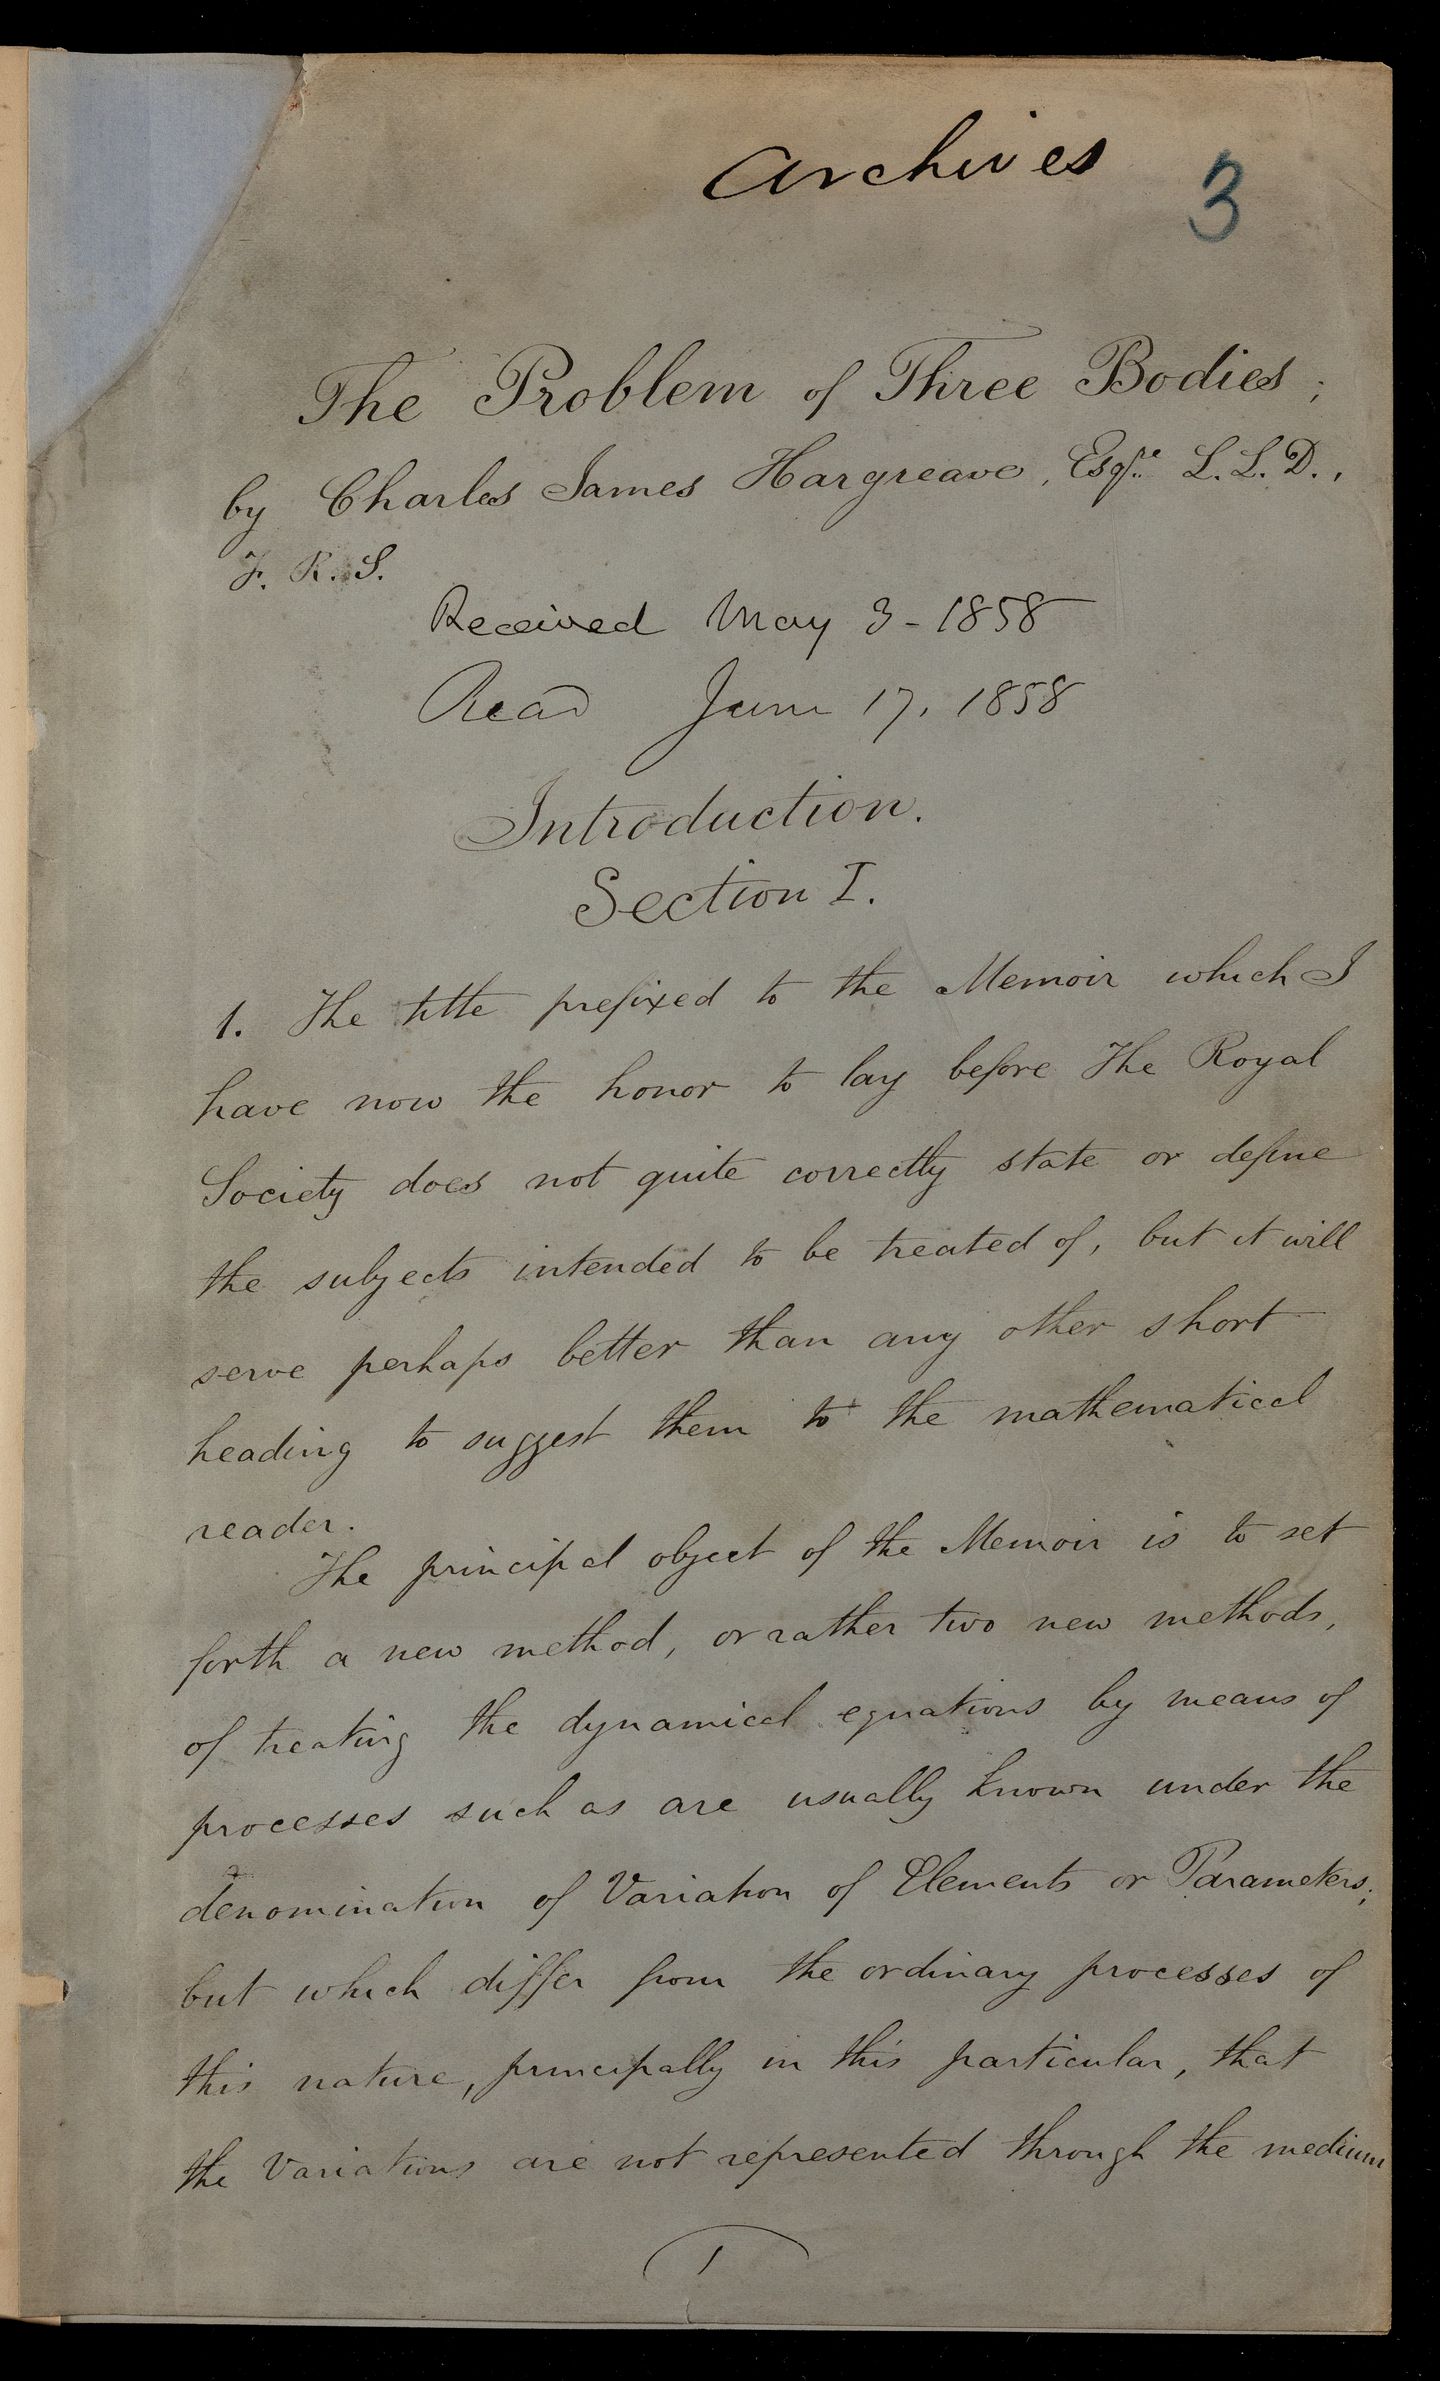 Archives
3
The Problem of Three Bodies;
by Charles James Hargreave, Esqre. L.L.D.,
F. R. S.
Received May 3 - 1858
Read June 17. 1858
Introduction.
Section I.
1. The title prefixed to the Memoir which I
have now the honor to lay before The Royal
Society does not quite correctly state or define
the subjects intended to be treated of, but it will
serve perhaps better than any other short
heading to suggest them to the mathematical
reader.
The principal object of the Memoir is to set
forth a new method, or rather two new methods,
of treating the dynamical equations by means of
processes such as are usually known under the
denomination of Variation of Elements or Parameters;
but which differ from the ordinary processes of
this nature, principally in this particular, that
the Variations are not represented through the medium
1